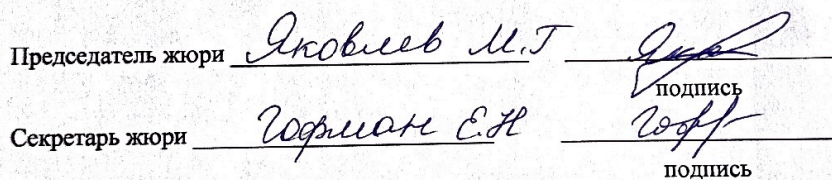 Председатель жюри Яковлев М.Г
подпись
Секретарь жюри Гофман Е.Н
подпись